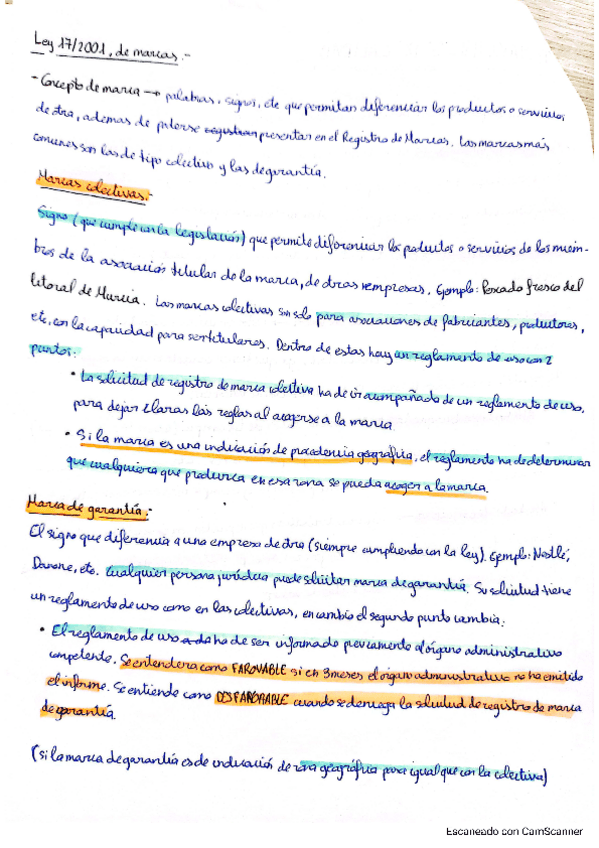 Ley 17/2001, de marcas.-
- Concepto de marca → palabras, signos, etc que permitan diferenciar los productos o servicios
de otra, ademas de poderse registrar presentar en el Registro de Marcas. Las marcas más
comunes son las de tipo colectivo y las de garantía.
Marcas colectivas.-
Signo (que cumple con la legislación) que permite diferenciar los productos o servicios de los miem-
bros de la asociación titular de la marca, de otras empresas. Ejemplo: Pescado fresco del
litoral de Murcia. Las marcas colectivas son solo para asociaciones de fabricantes, productores,
etc, con la capacidad para ser titulares. Dentro de estas hay un reglamento de uso con 2
puntos:
• La solicitud de registro de marca colectiva ha de ir acompañado de un reglamento de uso,
para dejar claras las reglas al acogerse a la marca.
• Si la marca es una indicación de procedencia geográfica, el reglamento ha de determinar
que cualquiera que produzca en esa zona se pueda acoger a la marca.
Marca de garantía.-
El signo que diferencia a una empresa de otra (siempre cumpliendo con la ley). Ejemplo: Nestlé,
Danone, etc. Cualquier persona jurídica puede solicitar marca de garantía. Su solicitud tiene
un reglamento de uso como en las colectivas, en cambio el segundo punto cambia:
• El reglamento de uso ha de ser informado previamente al órgano administrativo
competente. Se entenderá como FAROVABLE si en 3 meses el órgano administrativo no ha emitido
el informe. Se entiende como DESFAROVABLE cuando se deniega la solicitud de registro de marca
de garantía.
(si la marca de garantía es de indicación de zona geográfica pasa igual que con la colectiva)
Escaneado con CamScanner